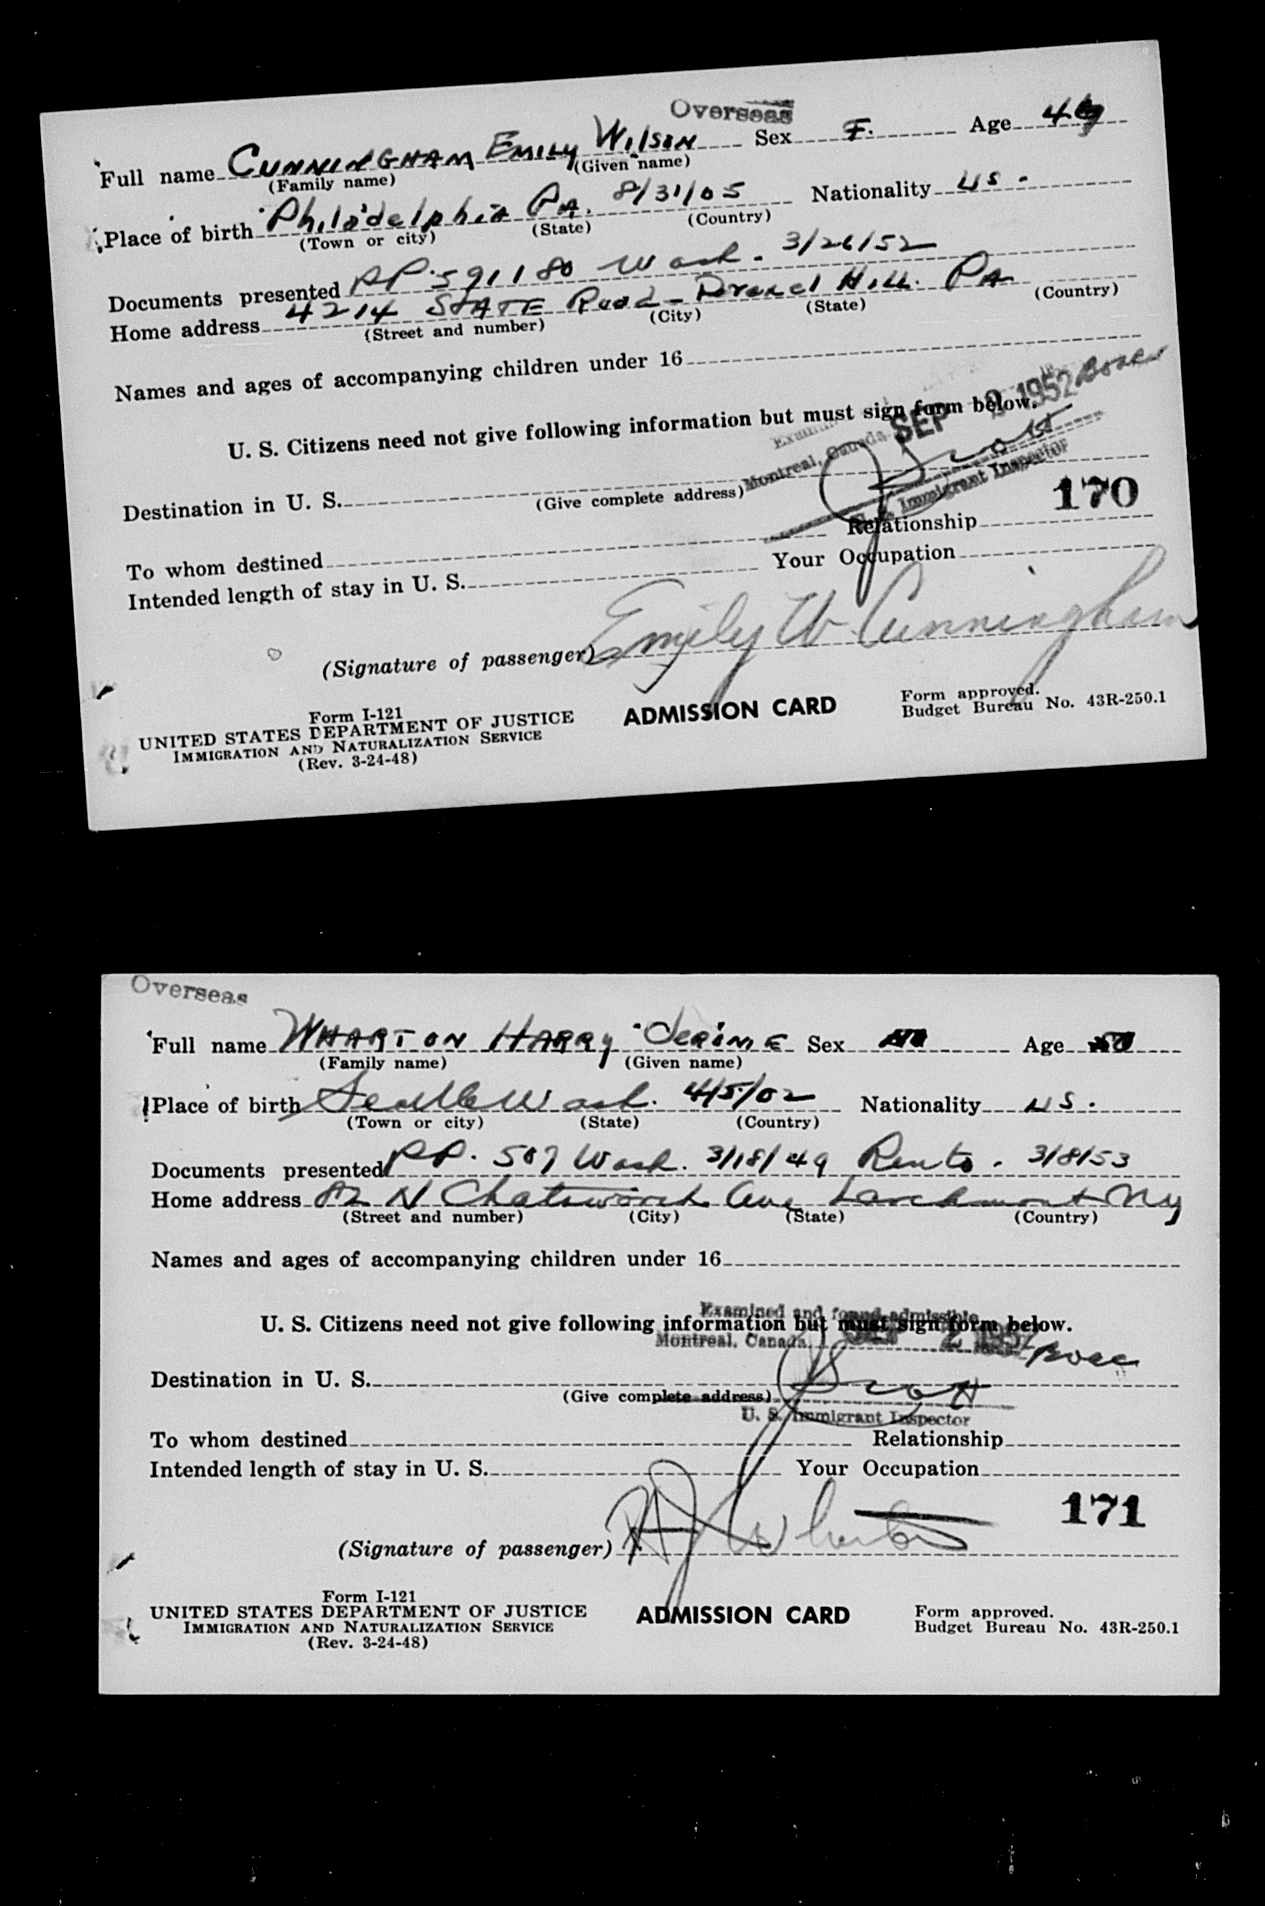 Overseas
Full name CUNNINGHAM EMILY WILSON Sex F. Age
(Family name) (Given name)
Place of birth Philadelphia PA. 8/31/05 Nationality US.
(Town or city) (State) (Country)
Documents presented PP. 591180 Wash. 3/26/52
Home address 4214 STATE Road - Drexel Hill. PA
(Street and number) (City) (State) (Country)
Names and ages of accompanying children under 16
U. S. Citizens need not give following information but must sign form below.
Montreal, Canada SEP 1952
Destination in U. S.
(Give complete address)
Scott
U. S. Immigrant Inspector
170
To whom destined Relationship
Intended length of stay in U. S. Your Occupation
(Signature of passenger) Emily W. Cunningham
Form I-121
UNITED STATES DEPARTMENT OF JUSTICE
IMMIGRATION AND NATURALIZATION SERVICE
(Rev. 3-24-48)
ADMISSION CARD
Form approved.
Budget Bureau No. 43R-250.1
Overseas
Full name WHARTON HARRY Sex Age
(Family name) (Given name)
Place of birth Seattle Wash. 4/5/02 Nationality US.
(Town or city) (State) (Country)
Documents presented PP. 507 Wash. 3/18/49 3/8/53
Home address 82 N Chatsworth Ave Larchmont NY
(Street and number) (City) (State) (Country)
Names and ages of accompanying children under 16
Examined and found admissible
U. S. Citizens need not give following information but must sign form below.
Montreal, Canada SEP 2 1952
Destination in U. S.
(Give complete address)
Scott
U. S. Immigrant Inspector
To whom destined Relationship
Intended length of stay in U. S. Your Occupation
171
(Signature of passenger) H J Wharton
Form I-121
UNITED STATES DEPARTMENT OF JUSTICE
IMMIGRATION AND NATURALIZATION SERVICE
(Rev. 3-24-48)
ADMISSION CARD
Form approved.
Budget Bureau No. 43R-250.1